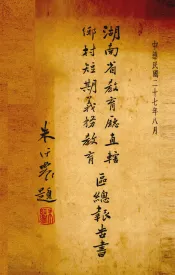 中華民國二十七年八月
湖南省教育廳直轄
鄉村短期義務教育
區總報告書
朱經農題